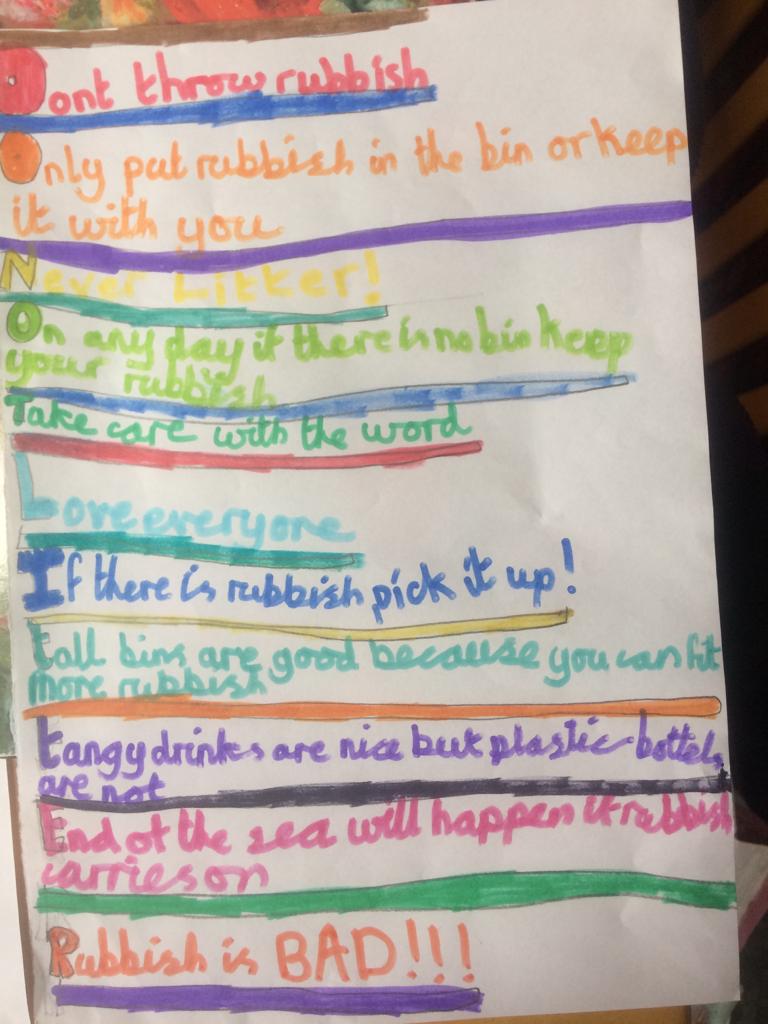 Dont throw rubbish
Only put rubbish in the bin or keep
it with you
Never Litter!
On any day if there is no bin keep
your rubbish
Take care with the word
Love everyone
If there is rubbish pick it up!
tall bins are good because you can fit
more rubbish
tangy drinks are nice but plastic bottels
are not
End of the sea will happen if rubbish
carries on
Rubbish is BAD!!!